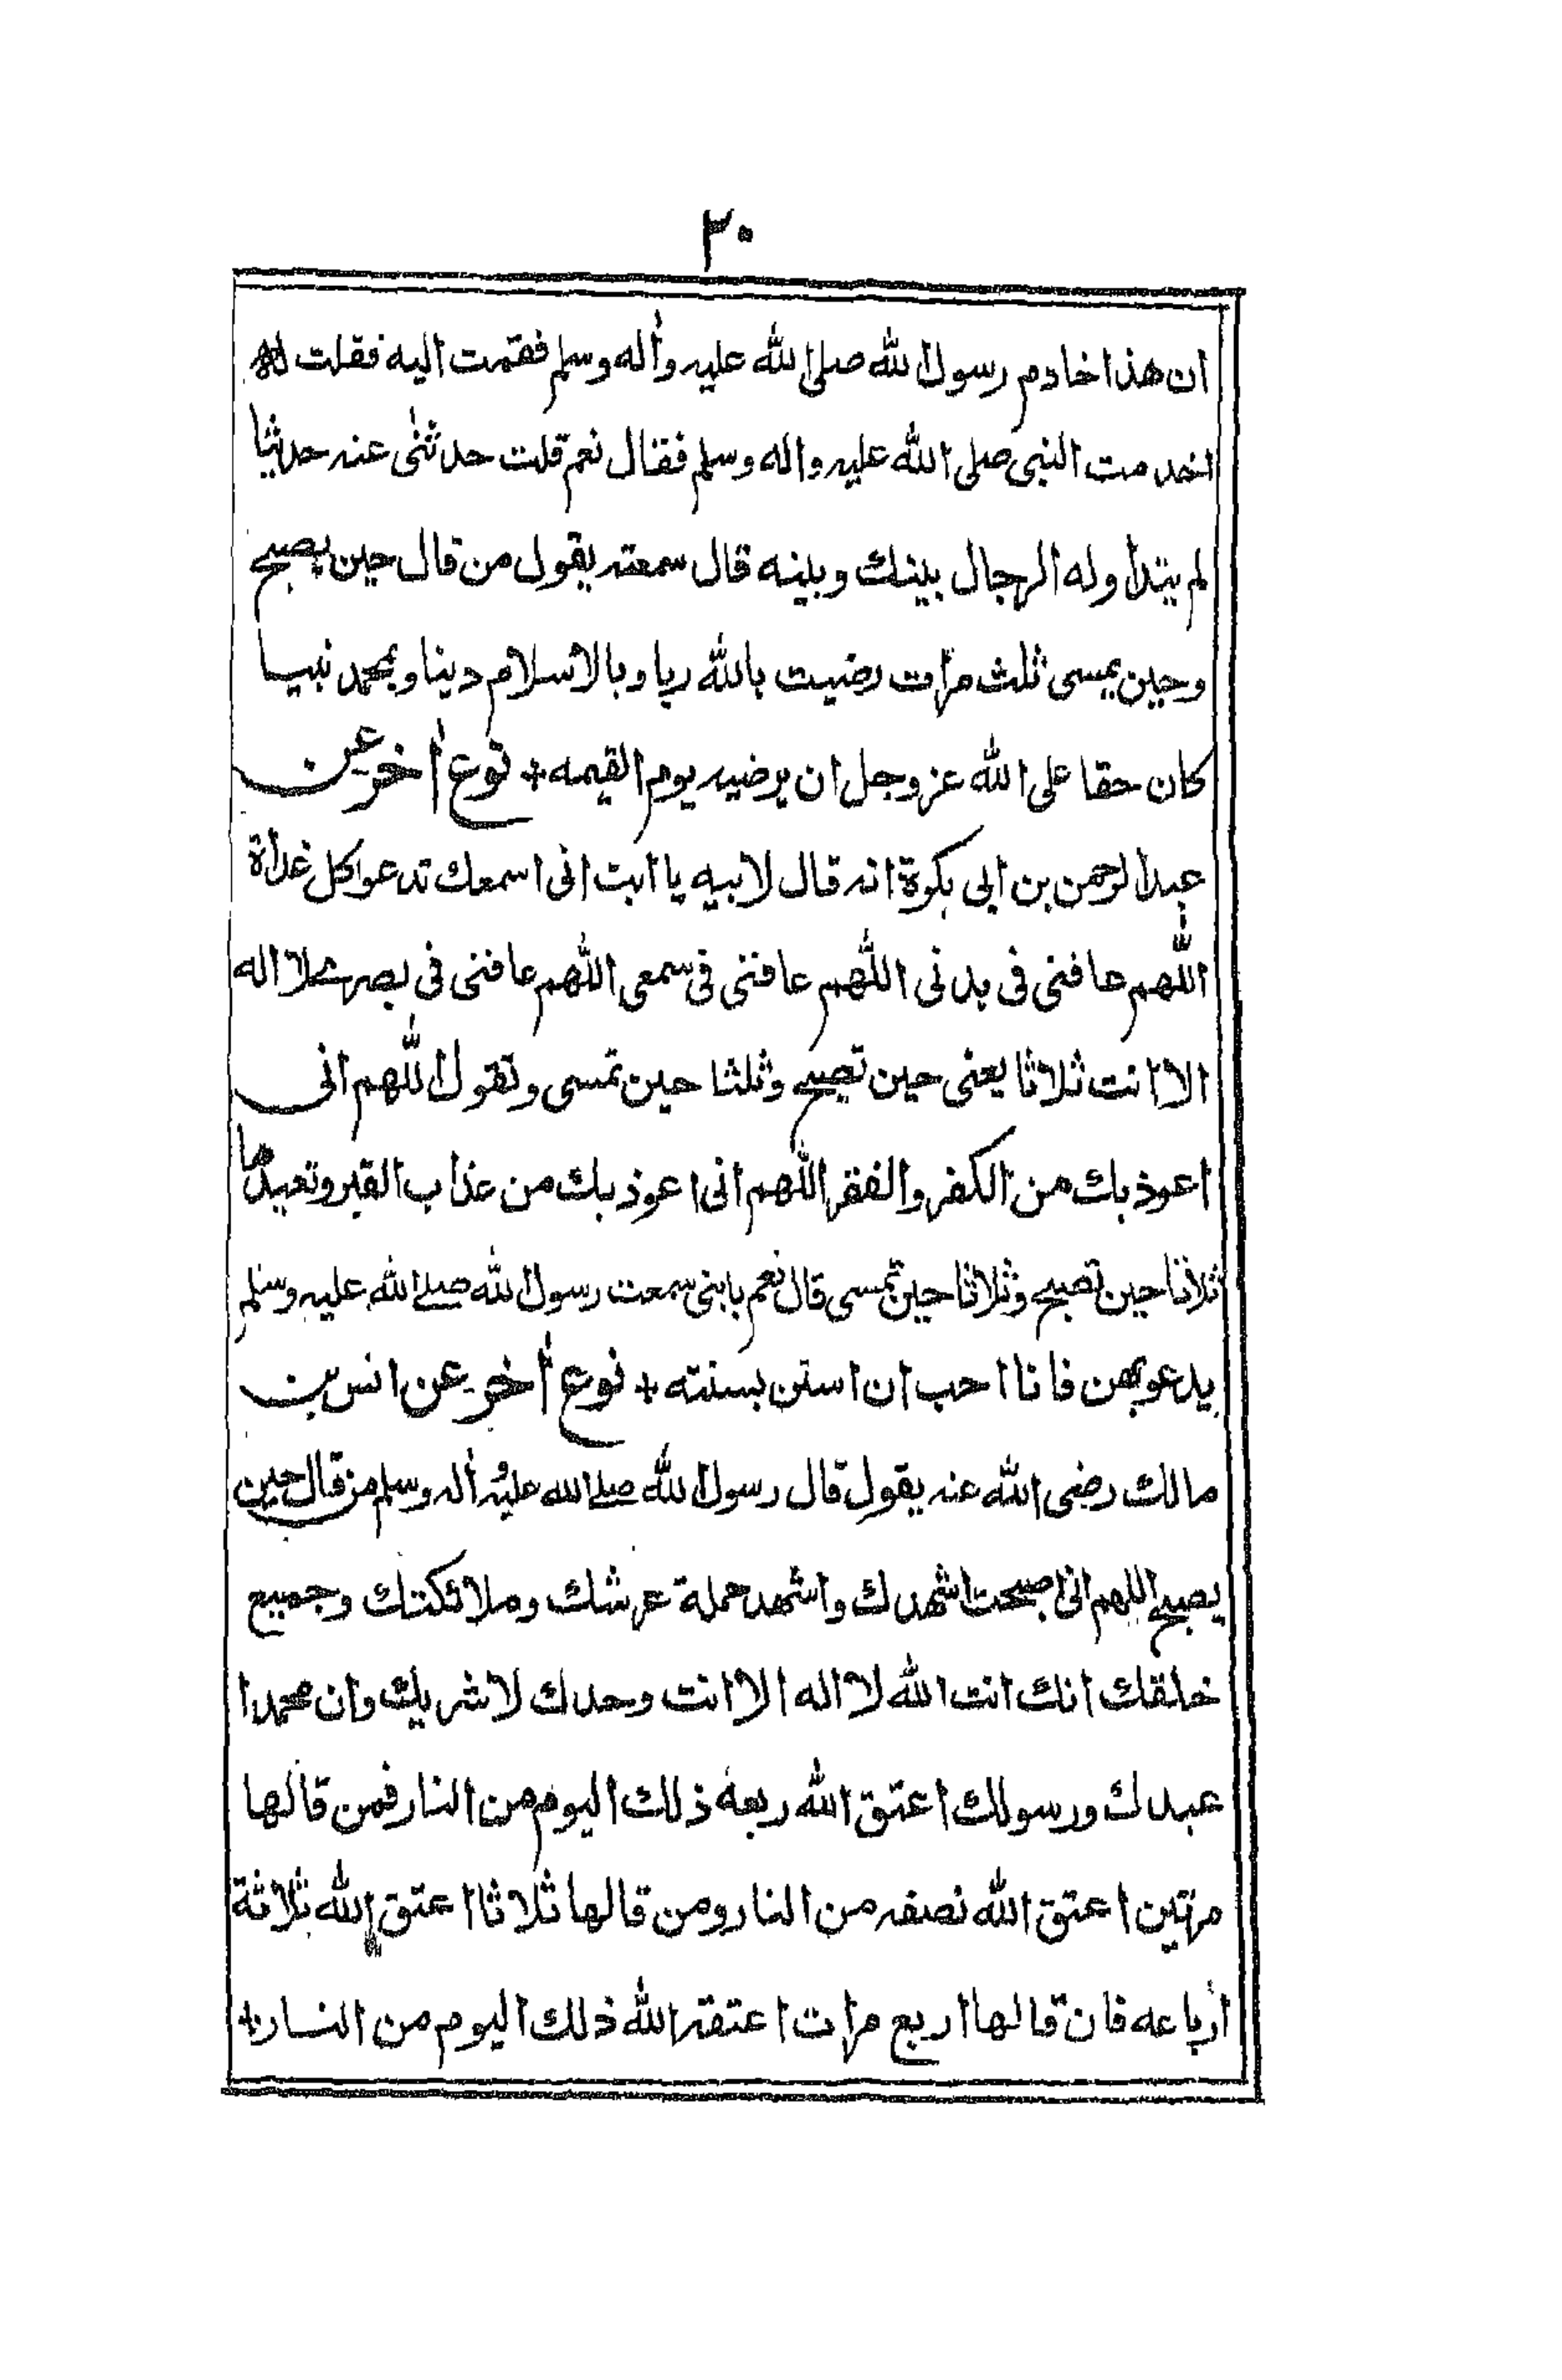 ٣٠
ان هذا خادم رسول الله صلى الله عليه وأله وسلم فقمت اليه فقلت له
اخدمت النبى صلى الله عليه واله وسلم فقال نعم قلت حدثنى عنه حديثا
لم يتداوله الرجال بينك وبينه قال سمعته يقول من قال حين يصبح
وحين يمسى ثلث مرات رضيت بالله ربا وبالاسلام دينا وبمحمد نبيا
كان حقا على الله عز وجل ان يرضيه يوم القيمه + نوع أخر عن
عبد الرحمن بن ابى بكرة انه قال لابيه يا ابت انى اسمعك تدعو اكل غداة
اللهم عافنى فى بدنى اللهم عافنى فى سمعى اللهم عافنى فى بصرى لا اله
الا انت ثلاثا يعنى حين تصبح وثلثا حين تمسى وتقول اللهم انى
اعوذ بك من الكفر والفقر اللهم انى اعوذ بك من عذاب القبر وتعيدها
ثلاثا حين تصبح وثلاثا حين تمسى قال نعم يا بنى سمعت رسول الله صلے الله عليه وسلم
يدعو بهن فانا احب ان استن بسنته + نوع أخر عن انس بن
مالك رضى الله عنه يقول قال رسول الله صلے الله عليه وأله وسلم من قال حين
يصبح اللهم انى اصبحت اشهدك واشهد حملة عرشك وملائكتك وجميع
خلقك انك انت الله لا اله الا انت وحدك لا شريك وان محمدا
عبدك ورسولك اعتق الله ربعه ذلك اليوم من النار فمن قالها
مرتين اعتق الله نصفه من النار ومن قالها ثلاثا اعتق الله ثلاثة
أرباعه فان قالها اربع مرات اعتقه الله ذلك اليوم من النار +